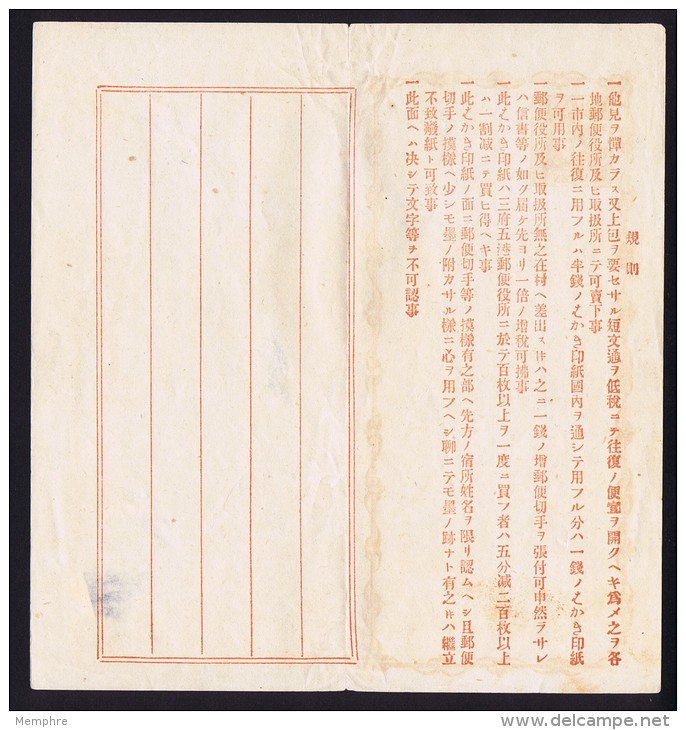 規則
一他見ヲ憚カラス又上包ヲ要セサル短文通ヲ低稅ニテ往復ノ便宜ヲ開クヘキ爲メ之ヲ各
地郵便役所及ヒ取扱所ニテ可賣下事
一一市內ノ往復ニ用フルハ半錢ノはかき印紙國內ヲ通シテ用フル分ハ一錢ノはかき印紙
ヲ可用事
一郵便役所及ヒ取扱所無之在村ヘ差出スキハ之ニ一錢ノ增郵便切手ヲ張付可申然ヲサレ
ハ信書等ノ如グ届ケ先ヨリ一倍ノ增稅可拂事
一此はかき印紙ハ三府五港郵便役所ニ於テ百枚以上ヲ一度ニ買フ者ハ五分減二百枚以上
ハ一割減ニテ買ヒ得ヘキ事
一此はかき印紙ノ面ニ郵便切手等ノ摸樣有之部ヘ先方ノ宿所姓名ヲ限リ認ムヘシ且郵便
切手ノ摸樣ヘ少シモ墨ノ附カサル樣ニ心ヲ用フヘシ聊ニテモ墨ノ跡ナト有之キハ繼立
不致廢紙ト可致事
一此面ヘハ決シテ文字等ヲ不可認事
Memphre
delcampe.net